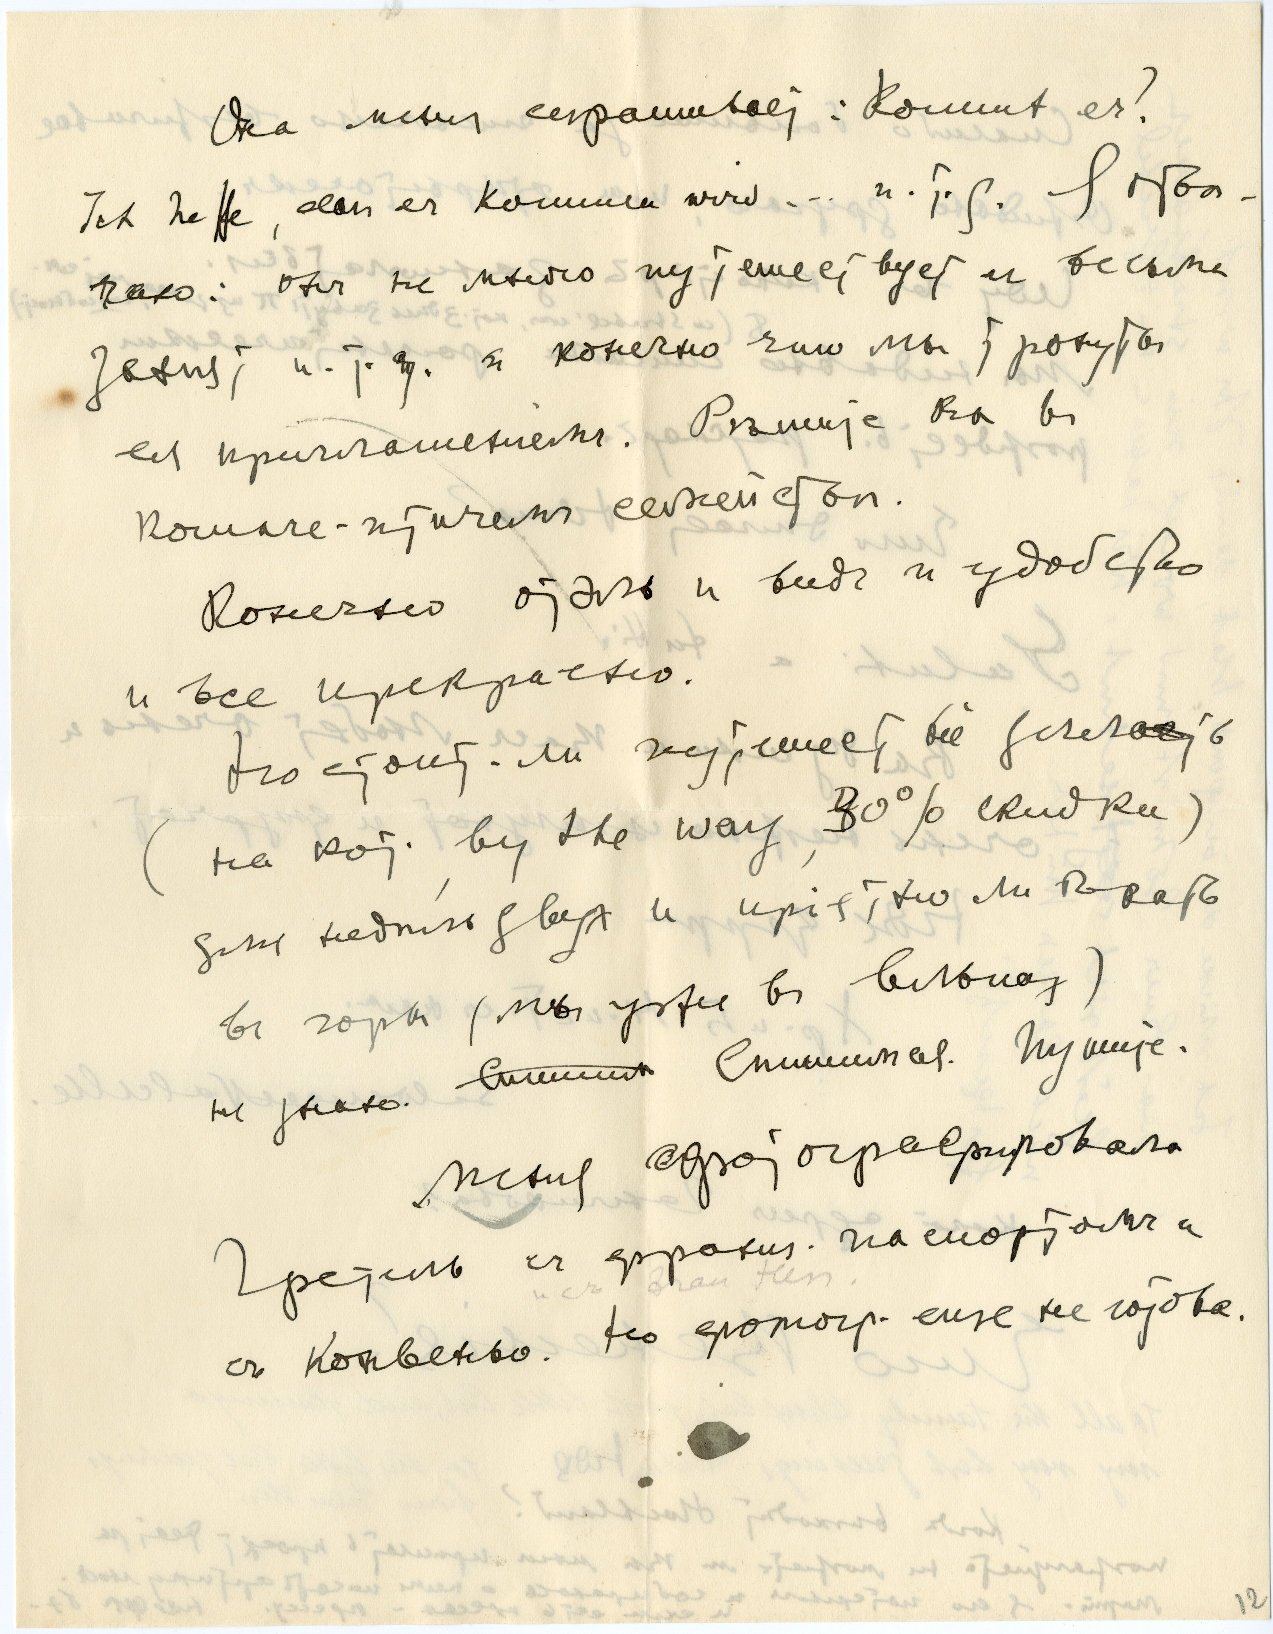 Она меня спрашиваетъ: Kommt er?
Ich hoffe, dass er kommen wird... и.т.д. Я отвѣ-
чаю: онъ не много путешествуетъ и весьма
занятъ и.т.д. и конечно что мы тронуты
ея приглашеніемъ. Рѣшите Вы въ
Кошке-птичемъ семействѣ.
Конечно отель и видъ и удобство
и все прекрасно.
Но стоитъ-ли путешествіе дѣлать
(на кот. by the way, 30% скидки)
для недѣль двухъ и пріятно ли Вамъ
въ горы (мы уже въ )
не знаю. Спишемся. Пишите.
Меня сфотографировала
Гретель съ франц. паспортомъ и
съ Конвеньо. Но фотогр. еще не готова.
12